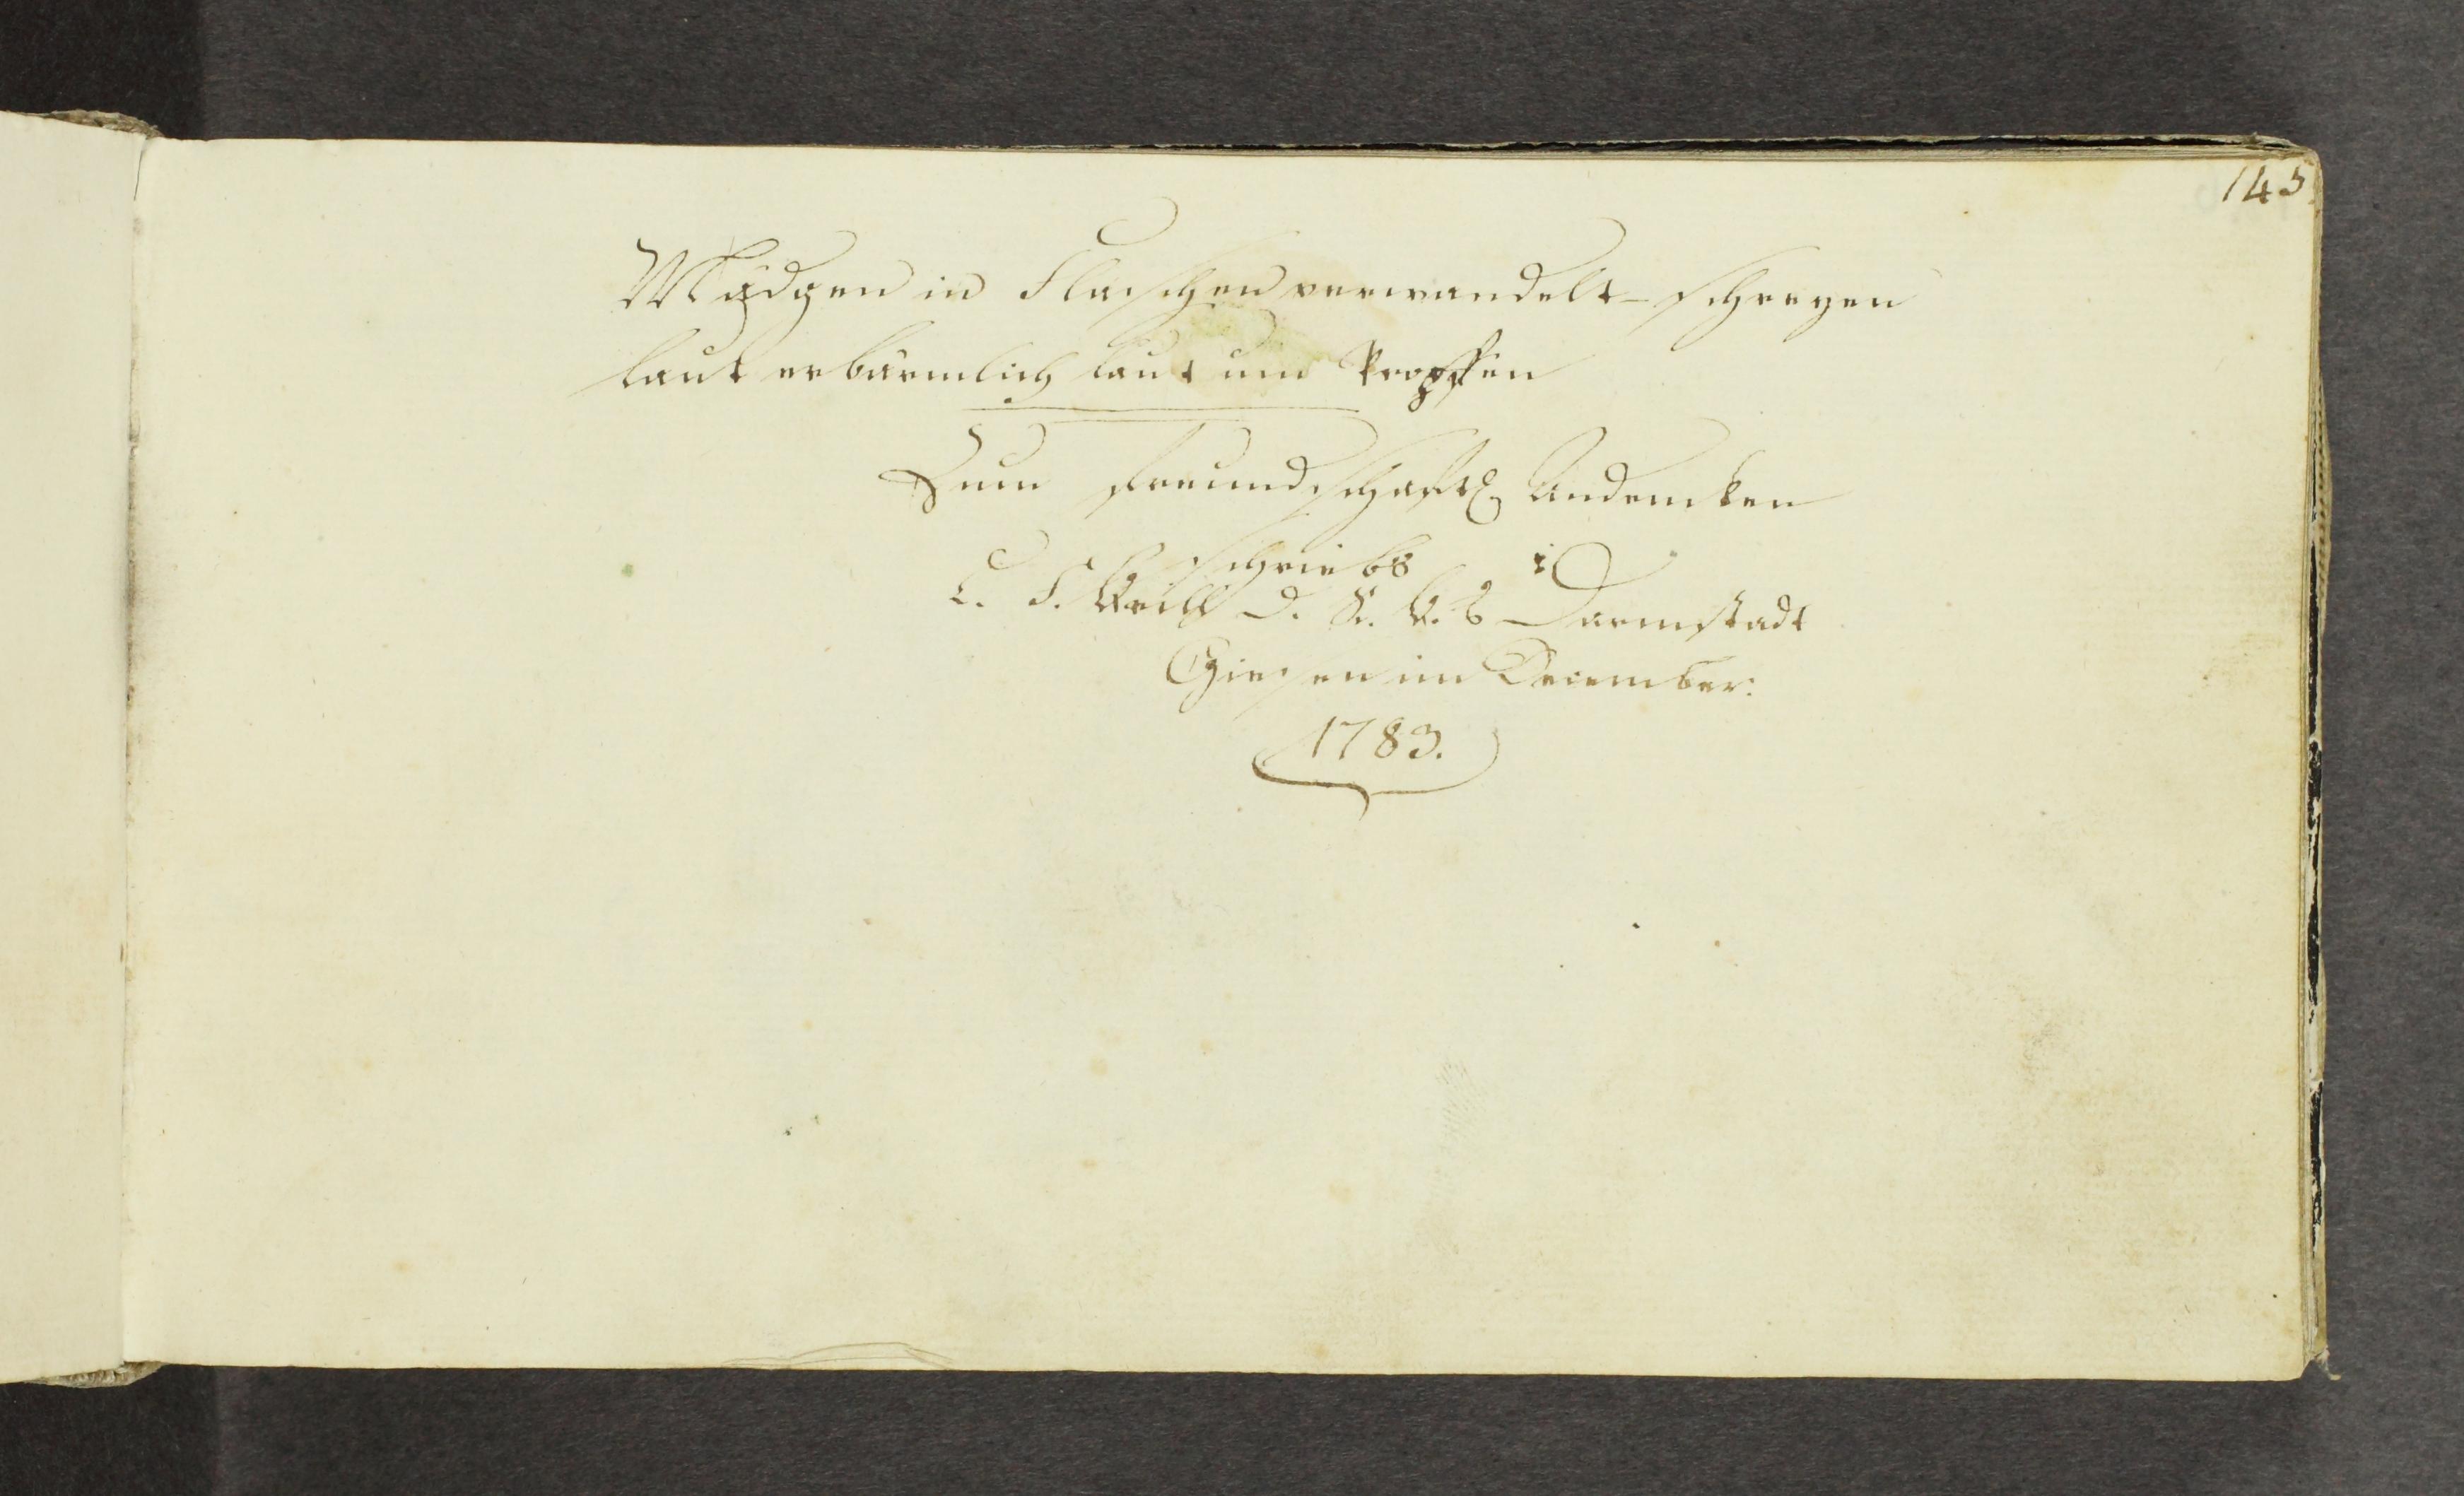 145
Mädgen in Flaschen verwandelt – schreyen
laut erbärmlich laut um Propffen
Zum freundschaftl Andencken
schriebs
C. F. D. R. B. Darmstadt
Giesen im December:
1783.